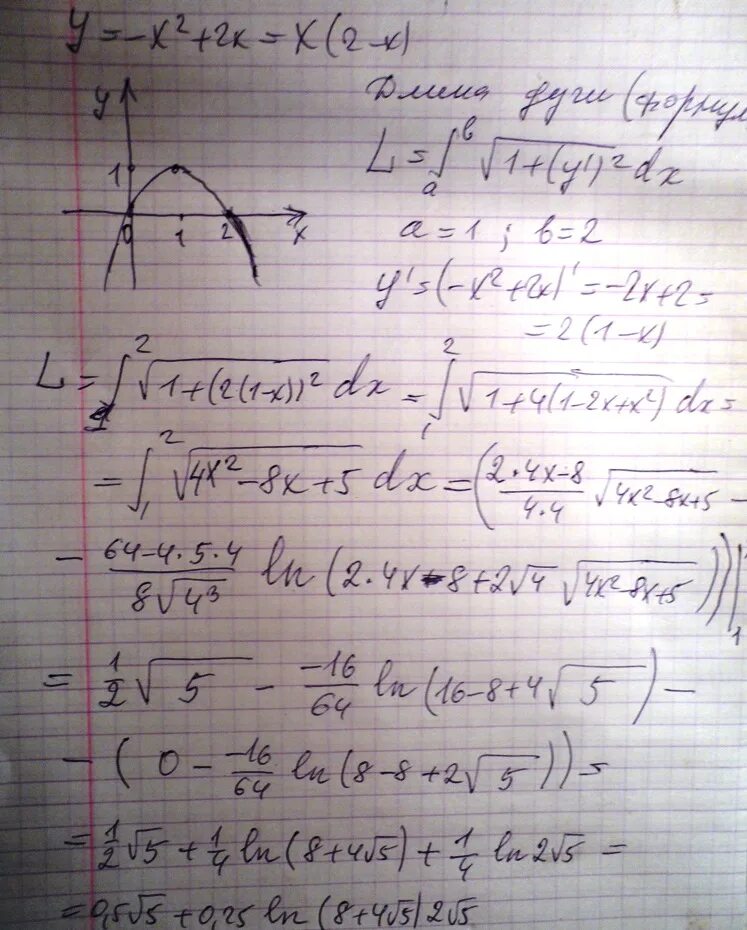 y = -x² + 2x = x(2-x)
y
1
0 1 2 x
Длина дуги (формул
L = ∫ₐᵇ √(1+(y')²) dx
a = 1 ; b = 2
y' = (-x² + 2x)' = -2x + 2 =
= 2(1-x)
L = ∫₁² √(1+(2(1-x))²) dx = ∫₁² √(1+4(1-2x+x²)) dx =
= ∫₁² √(4x²-8x+5) dx = ((2·4x-8)/(4·4) √(4x²-8x+5) -
- (64-4·5·4)/(8√4³) ln(2·4x-8+2√4 √(4x²-8x+5)))|₁
= 1/2 √5 - (-16)/64 ln(16-8+4√5) -
- (0 - (-16)/64 ln(8-8+2√5)) =
= 1/2 √5 + 1/4 ln(8+4√5) + 1/4 ln 2√5 =
= 0,5√5 + 0,25 ln (8+4√5) 2√5